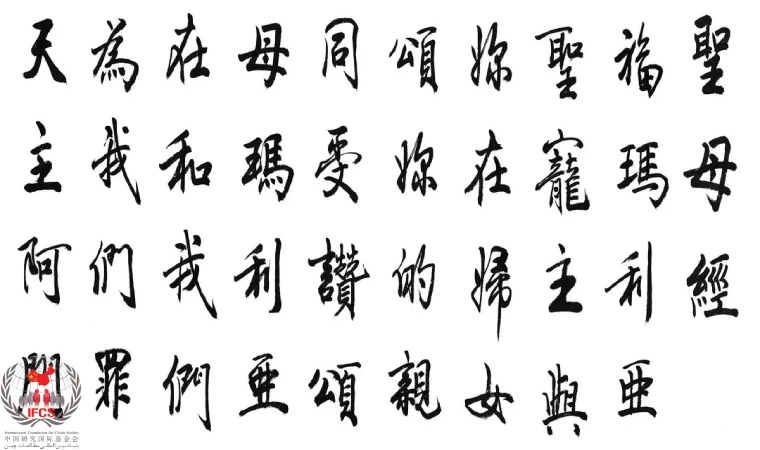 聖母經
福瑪利亞
聖寵主與
妳在婦女
頌妳的親
同受讚頌
母瑪利亞
在和我們
為我們罪
天主阿門
IFCS
International Foundation for China Studies
中国研究国际基金会
بنیاد بین المللی مطالعات چین